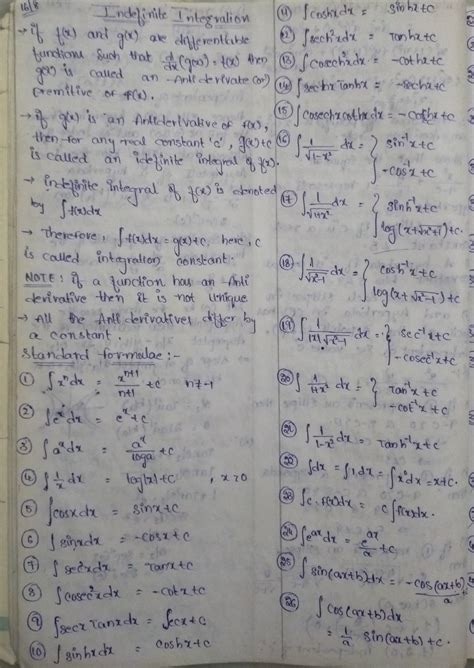 16/8
Indefinite Integration
→ if f(x) and g(x) are differentiable
functions such that d/dx (g(x)) = f(x) then
g(x) is called an -Anti derivate (or)
premitive of f(x).
→ if g(x) is an Antiderivative of f(x),
then for any real constant 'c', g(x)+c
is called an idefinite integral of f(x).
→ indefinite integral of f(x) is denoted
by ∫f(x)dx
→ Therefore, ∫f(x)dx = g(x)+c, here, c
is called integration constant.
NOTE: if a function has an -Anti
derivative then it is not unique
→ All the Anti derivatives differ by
a constant.
Standard formulae :-
① ∫xⁿdx = xⁿ⁺¹/n+1 + c n≠-1
② ∫eˣdx = eˣ+c
③ ∫aˣdx = aˣ/loga + c
④ ∫1/x dx = log|x|+c
⑤ ∫cosxdx = sinx+c
⑥ ∫sinxdx = -cosx+c
⑦ ∫sec²xdx = Tanx+c
⑧ ∫cosec²xdx = -cotx+c
⑨ ∫secx Tanxdx = secx+c
⑩ ∫sinhxdx = coshx+c
⑪ ∫coshxdx = sinhx+c
⑫ ∫sech²xdx = Tanhx+c
⑬ ∫cosech²xdx = -cothx+c
⑭ ∫sechxTanhx = -sechx+c
⑮ ∫cosechxcothxdx =
⑯ ∫1/√1-x² dx = { sin⁻¹x+c
-cos⁻¹x+c
⑰ ∫1/√1+x² dx = { sinh⁻¹x+c
log(x+√x²+1)+c.
⑱ ∫1/√x²-1 dx = { cosh⁻¹x+c
log(x+√x²-1)+c
⑲ ∫1/|x|√x²-1 dx = { sec⁻¹x+c
-cosec⁻¹x+c
⑳ ∫1/1+x² dx = { Tan⁻¹x+c
-cot⁻¹x+c
㉑ ∫1/1-x² dx = Tanh⁻¹x+c.
㉒ ∫dx = ∫1.dx = ∫x⁰dx = x+c.
㉓ ∫c.f(x)dx = c∫f(x)dx.
㉔ ∫eᵃˣdx = eᵃˣ/a + c.
㉕ ∫sin(ax+b)dx = -cos(ax+b)/a
㉖ ∫cos(ax+b)dx
= 1/a sin(ax+b)+c.